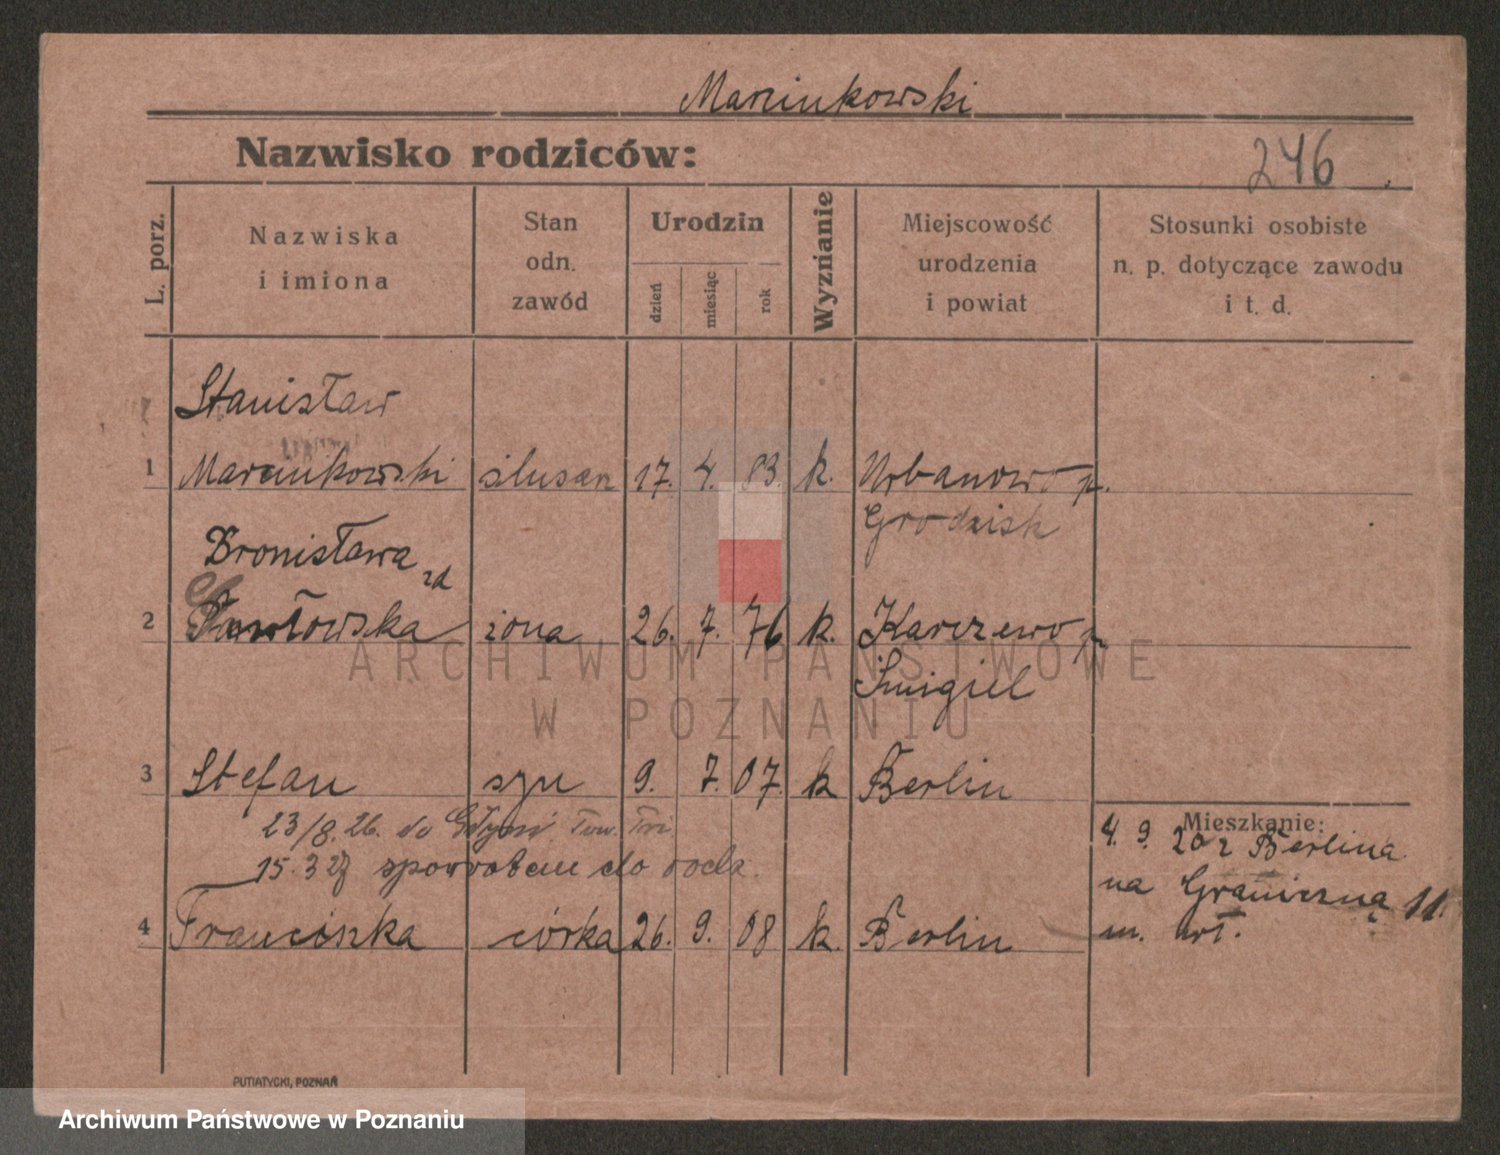 Marcinkowski
Nazwisko rodziców:
246
L. porz.
Nazwiska
i imiona
Stan
odn.
zawód
Urodzin
dzień
miesiąc
rok
Wyznanie
Miejscowość
urodzenia
i powiat
Stosunki osobiste
n. p. dotyczące zawodu
i t. d.
Stanisław
1 Marcinkowski ślusarz 17. 4. 83. k. Urbanowo p.
Grodzisk
Bronisława zd
2 Pawłowska żona 26. 7. 76 k. Karczewo p.
Śmigiel
ARCHIWUM PAŃSTWOWE
W POZNANIU
3 Stefan syn 9. 7. 07. k Berlin
23/8. 26. do Gdyni Tow.
15. 3 27 spowrotem do rodz.
Mieszkanie:
4. 9. 20 z Berlina
na Graniczną 11.
m. wł.
4 Franciszka córka 26. 9. 08 k. Berlin
PUTIATYCKI, POZNAŃ
Archiwum Państwowe w Poznaniu